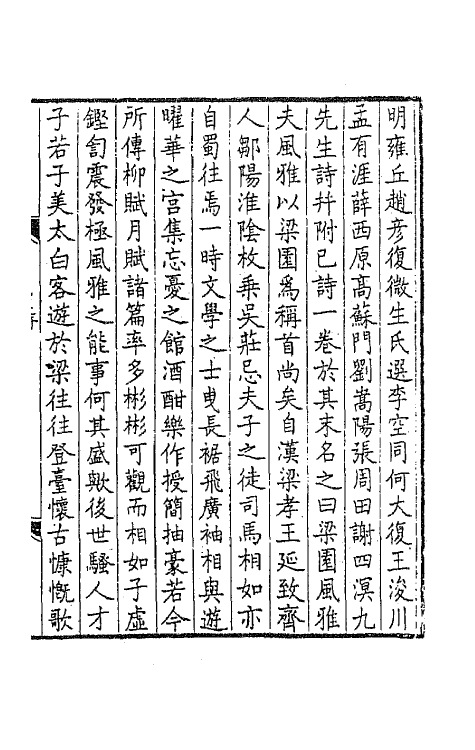 明雍丘趙彥復微生氏選李空同何大復王浚川
孟有涯薛西原高蘇門劉嵩陽張周田謝四溟九
先生詩幷附已詩一卷於其末名之曰梁園風雅
夫風雅以梁園爲稱首尚矣自漢梁孝王延致齊
人鄒陽淮陰枚乘吳莊忌夫子之徒司馬相如亦
自蜀往焉一時文學之士曳長裾飛廣袖相與遊
曜華之宮集忘憂之館酒酣樂作授簡抽豪若今
所傳柳賦月賦諸篇率多彬彬可觀而相如子虛
鏗訇震發極風雅之能事何其盛歟後世騷人才
子若子美太白客遊於梁往往登臺懷古慷慨歌